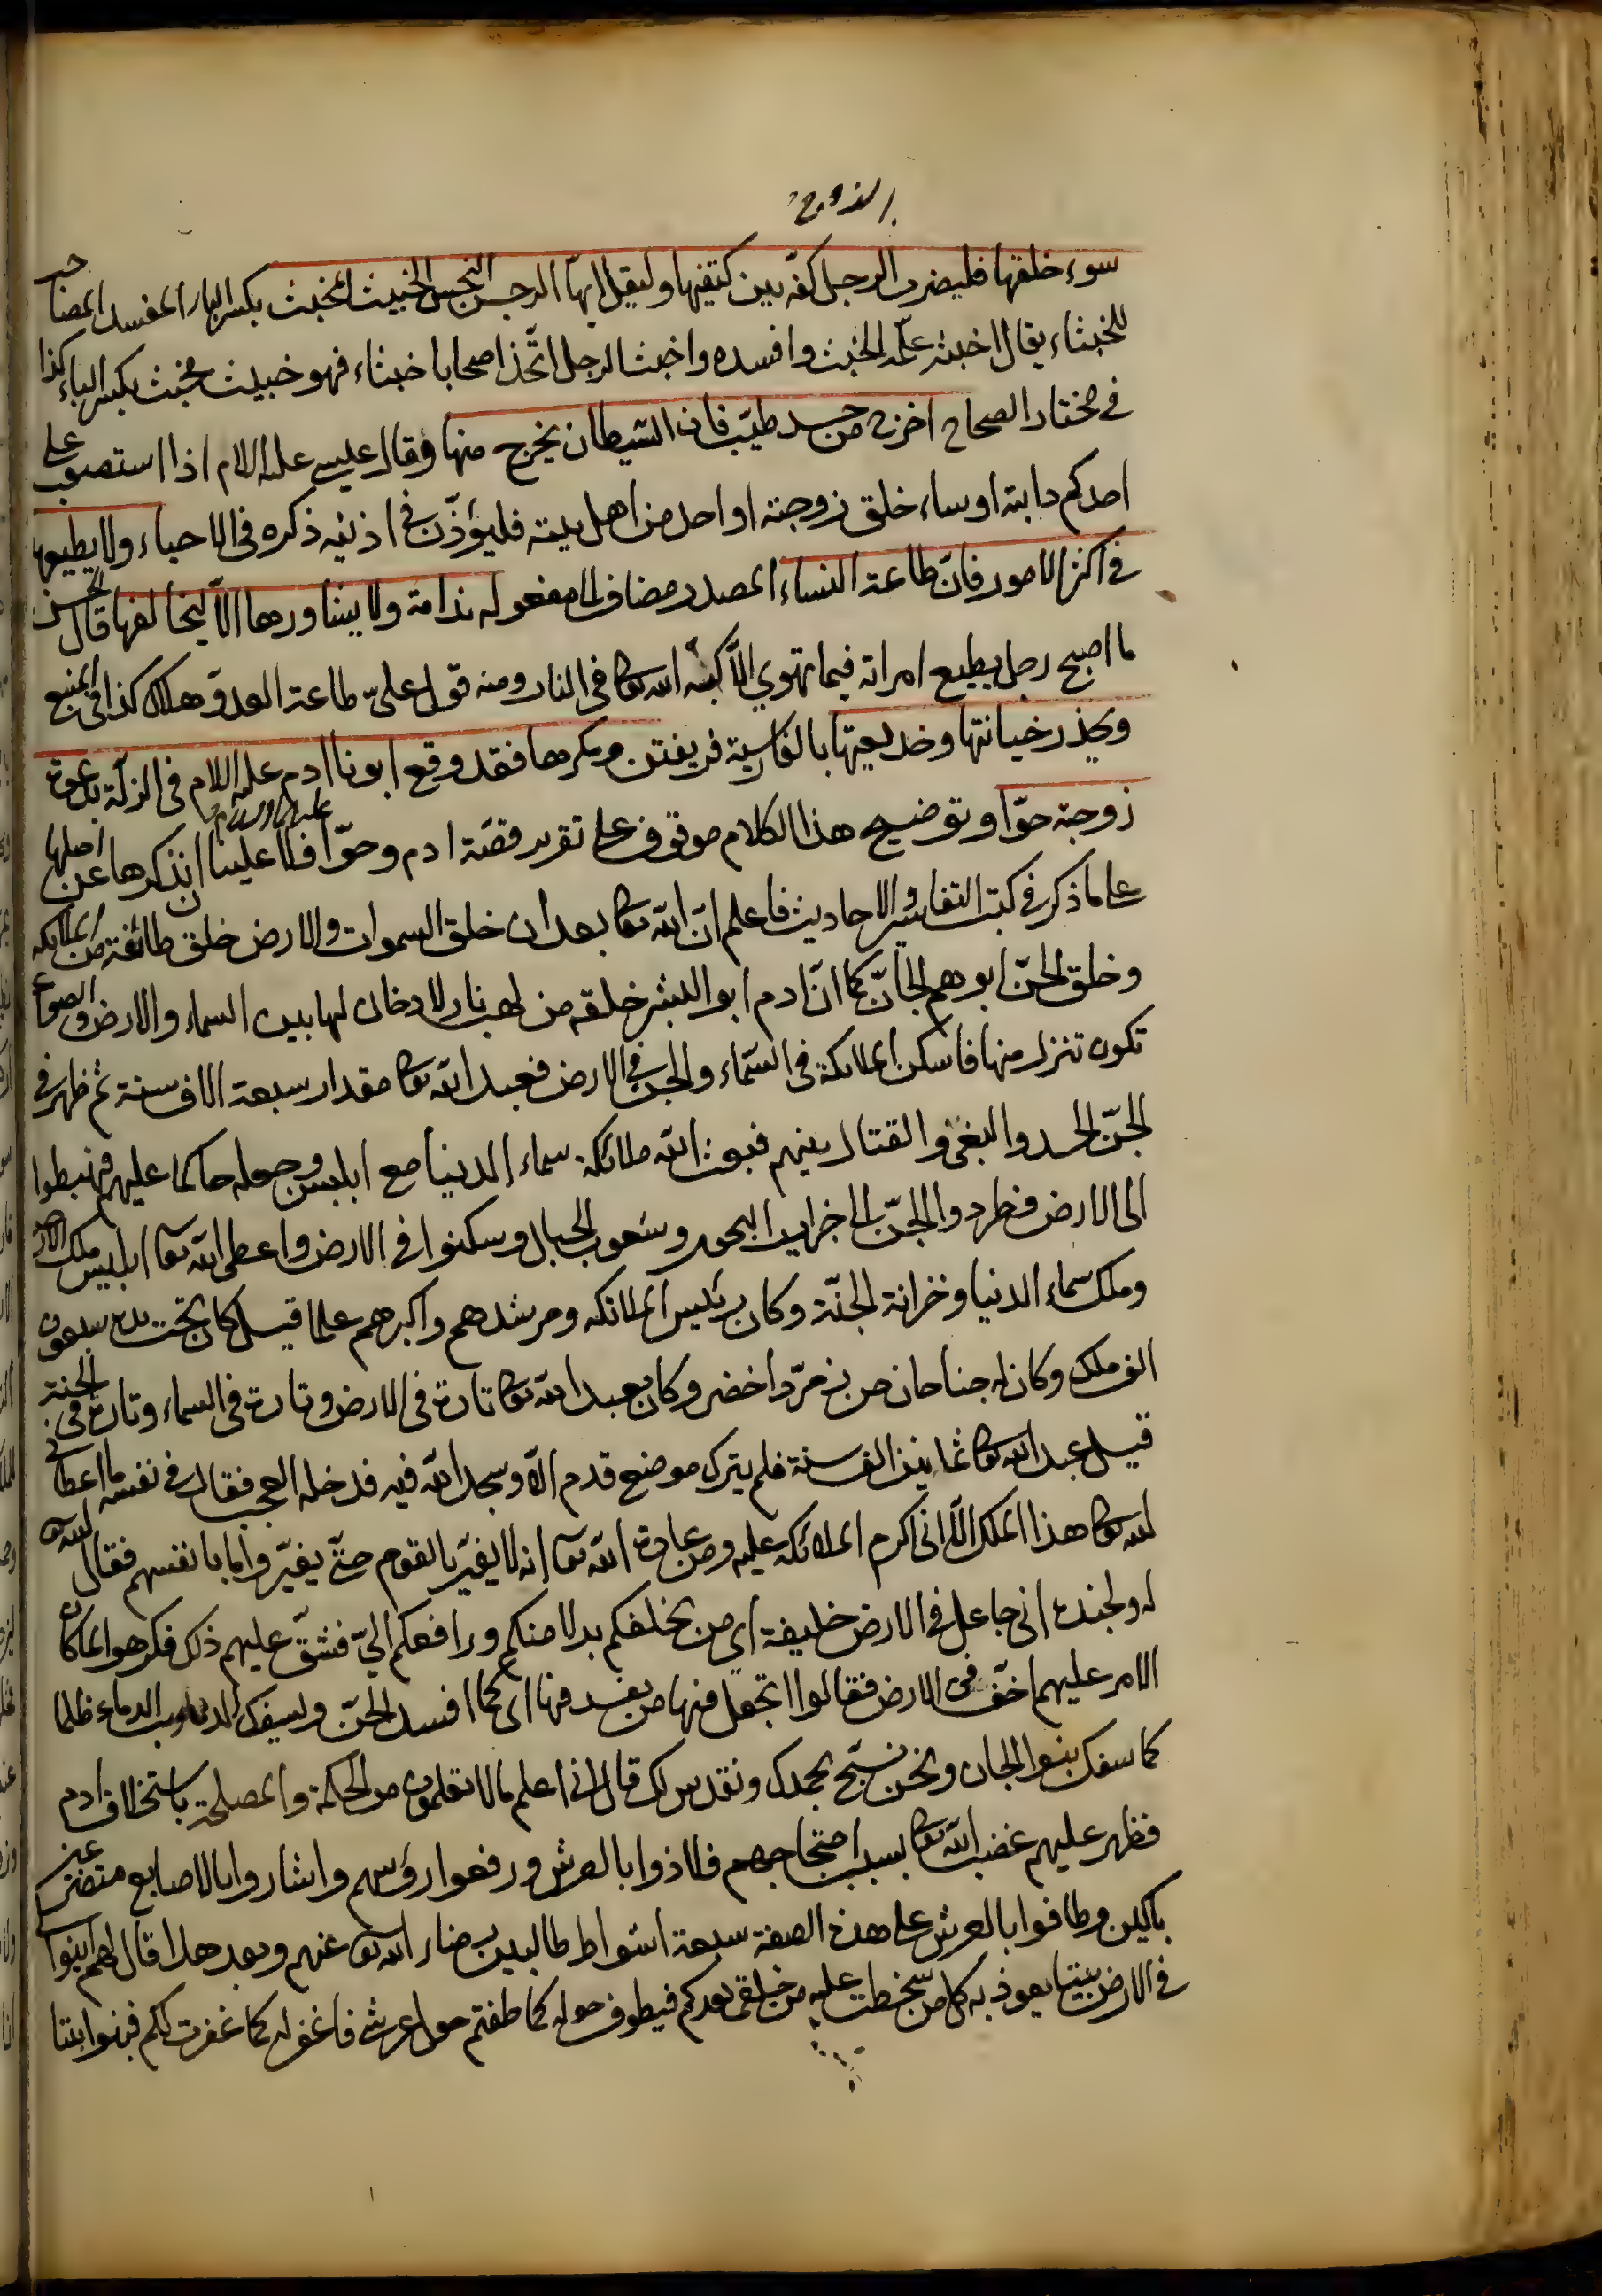 الزوج
سوء خلقها فليضرب الرجل كفه بين كتفيها وليقل ايها الرجس النجس الخبيث المخبث بكسر الباء المفسد المصاحب
للخبثاء يقال اخبثه علمه الخبث وافسده واخبث الرجل اتخذ اصحابا خبثاء فهو خبيث مخبث بكسر الباء كذا
في مختار الصحاح اخرج من جسد طيب فان الشيطان يخرج منها وقال عليه السلام اذا استصعب على
احدكم دابته او ساء خلق زوجته او احد من اهل بيته فليؤذن في اذنيه ذكره في الاحياء ولا يطيعها
في اكثر الامور فان طاعة النساء المصدر مضاف الى مفعوله ندامة ولا يشاورها الا ليخالفها قال الحسن
ما اصبح رجل يطيع امراته فيما تهوي الا كبه الله تعا في النار ومنه قول علي طاعة العدو هلاك كذا في المنبع
ويحذر خيانتها وخديعتها بالفارسية فريفتن ومكرها فقد وقع ابونا ادم عليه السلام في الزلة بدعوة
زوجة حوا وتوضيح هذا الكلام موقوف على تقرير قصة ادم وحوا عليهما السلام فلا علينا ان نذكرها عن اصلها
على ما ذكر في كتب التفاسير والاحاديث فاعلم ان الله تعا بعد ان خلق السموات والارض خلق طائفة من الملائكة
وخلق الجن ابوهم الجان كما ان ادم ابو البشر خلقه من لهب نار لا دخان لها بين السماء والارض والصواعق
تكون تنزل منها فاسكن الملائكة في السماء والجن في الارض فعبد الله تعا مقدار سبعة الاف سنة ثم ظهر في
الجن الحسد والبغي والقتال بينهم فبعث الله ملائكة سماء الدنيا مع ابليس وجعله حاكما عليهم فهبطوا
الى الارض فطردوا الجن الى جزاير البحور وشعوب الجبال وسكنوا في الارض واعطى الله تعا ابليس ملك الارض
وملك سماء الدنيا وخزانة الجنة وكان رئيس الملائكة ومرشدهم واكبرهم علما قيل كان تحت يده سبعون
الف ملك وكان له جناحان من زمرد اخضر وكان يعبد الله تعا تارة في الارض وتارة في السماء وتارة في الجنة
قيل عبد الله تعا ثمانين الف سنة فلم يترك موضع قدم الا وسجد الله فيه فدخله العجب فقال في نفسه ما اعطاني
الله تعا هذا الملك الا اني اكرم الملائكة عليه ومن عادة الله تعا انه لا يغير بالقوم حتى يغيروا ما بانفسهم فقال الله تعا
له ولجنده اني جاعل في الارض خليفة اي من يخلفكم بدلا منكم ورافعكم الي فشق عليهم ذلك فكرهوا لما كان
الامر عليهم اخف في الارض فقالوا اتجعل فيها من يفسد فيها اي كما افسد الجن ويسفك الدماء ظلما
كما سفك بنوا الجان ونحن نسبح بحمدك ونقدس لك قال اني اعلم ما لا تعلمون من الحكمة والمصلحة باستخلاف ادم
فظهر عليهم غضب الله تعا بسبب احتجاجهم فلاذوا بالعرش ورفعوا رؤسهم واشاروا بالاصابع متضرعين
باكين وطافوا بالعرش على هذه الصفة سبعة اشواط طالبين رضاء الله تعا عنهم وبعد هذا قال لهم ابنوا
في الارض بيتا يعوذ به كل من سخطت عليه من خلقي بعدكم فيطوف حوله كما طفتم حول عرشي فاغفر له كما غفرت لكم فبنوا بيتا